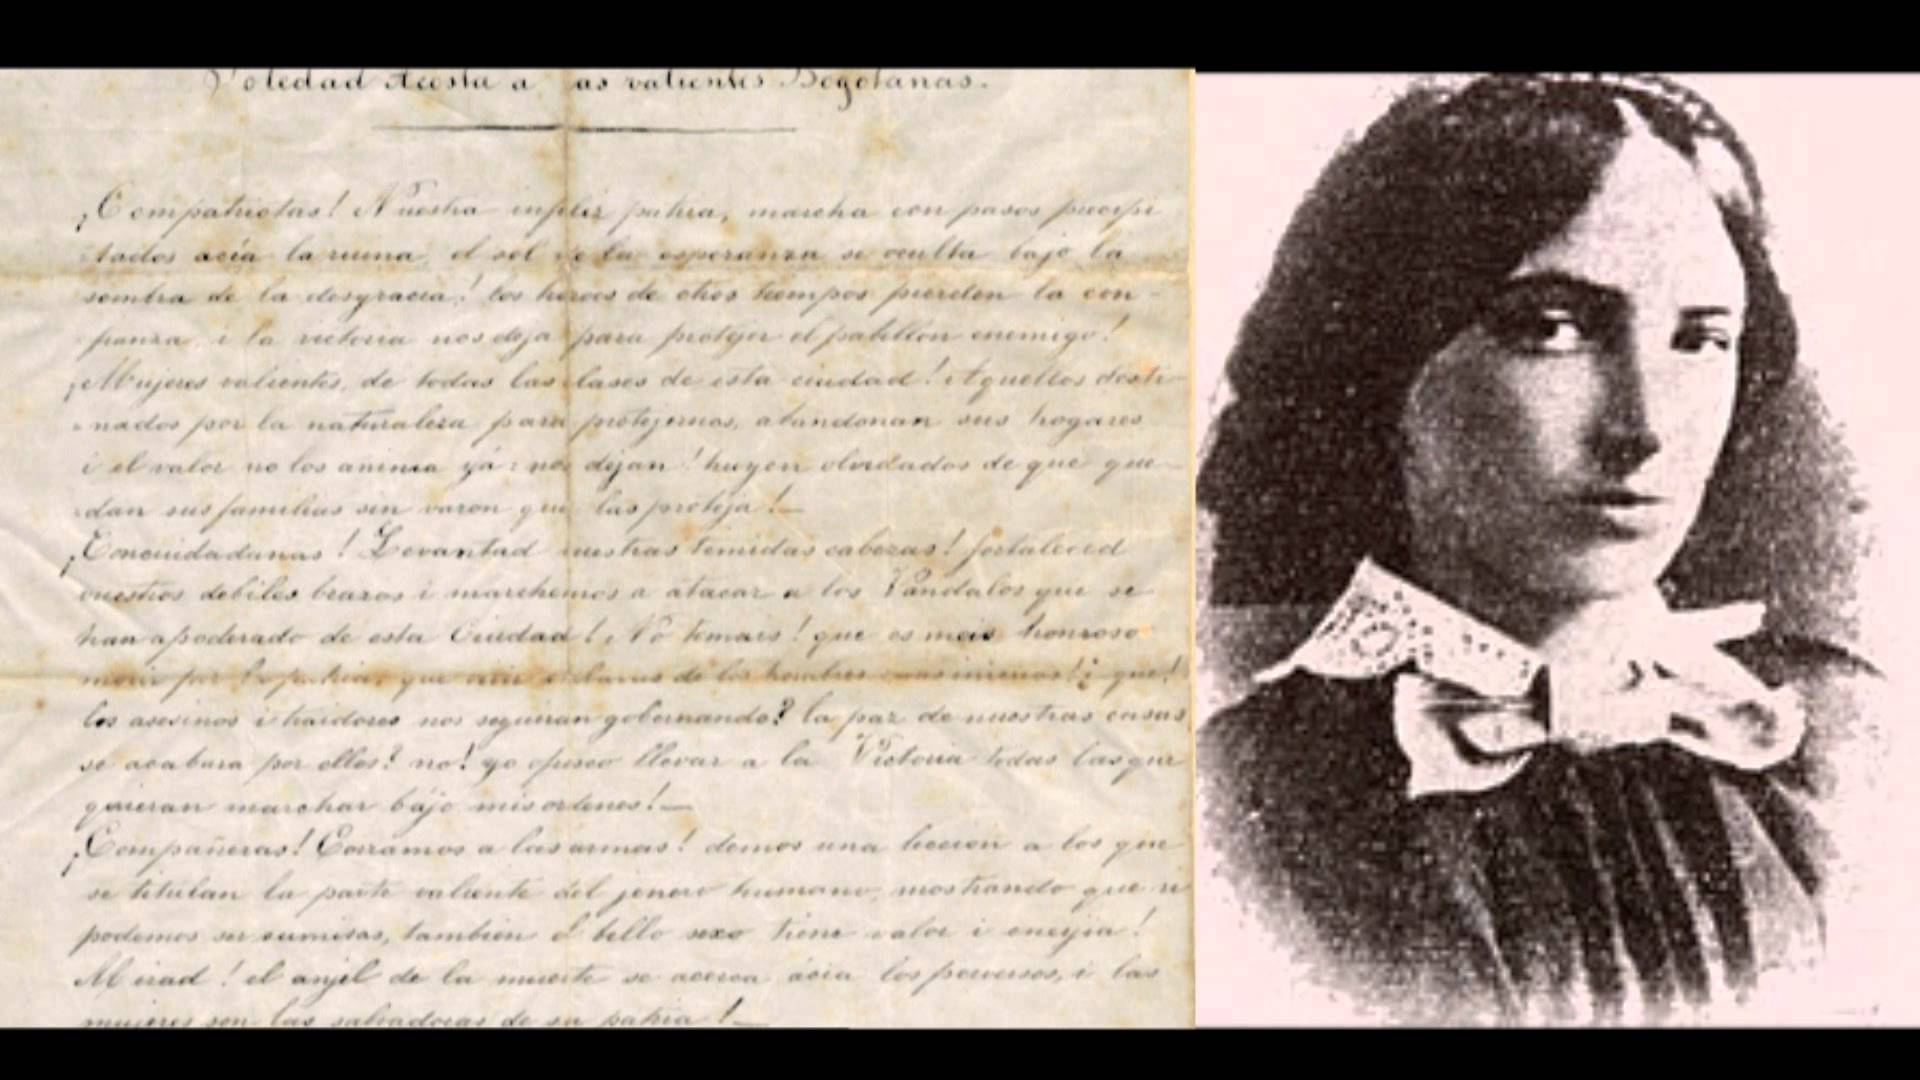 Soledad Acosta a las valientes Bogotanas.
¡Compatriotas! Nuestra infeliz patria, marcha con pasos precipi
tados acia la ruina, el sol de la esperanza se oculta bajo la
sombra de la desgracia! los heroes de otros tiempos pierden la con-
fianza, i la victoria nos deja para protejer el pabellon enemigo!
¡Mujeres valientes, de todas las clases de esta ciudad! Aquellos desti-
nados por la naturaleza para protejernos, abandonan sus hogares
i el valor no los anima yá: nos déjan! huyen olvidados de que que-
dan sus familias sin varon que las proteja!—
¡Conciudadanas! Levantad vuestras temidas cabezas! fortaleced
vuestros debiles brazos i marchemos a atacar a los Vandalos que se
han apoderado de esta Ciudad! No temais! que es mas honroso
morir por la patria, que vivir esclavas de los hombres ¡¿que!
los asesinos i traidores nos seguiran gobernando? la paz de nuestras casas
se acabara por ellos? no! yo ofresco llevar a la Victoria todas las que
quieran marchar bájo mis ordenes!—
¡Compañeras! Corramos a las armas! demos una leccion a los que
se titulan la parte valiente del jenero humano, mostrando que si
podemos ser sumisas, tambien el bello sexo tiene valor i enerjia!
Mirad! el anjel de la muerte se acerca ácia los perversos, i las
mujeres son las salvadoras de su patria!—